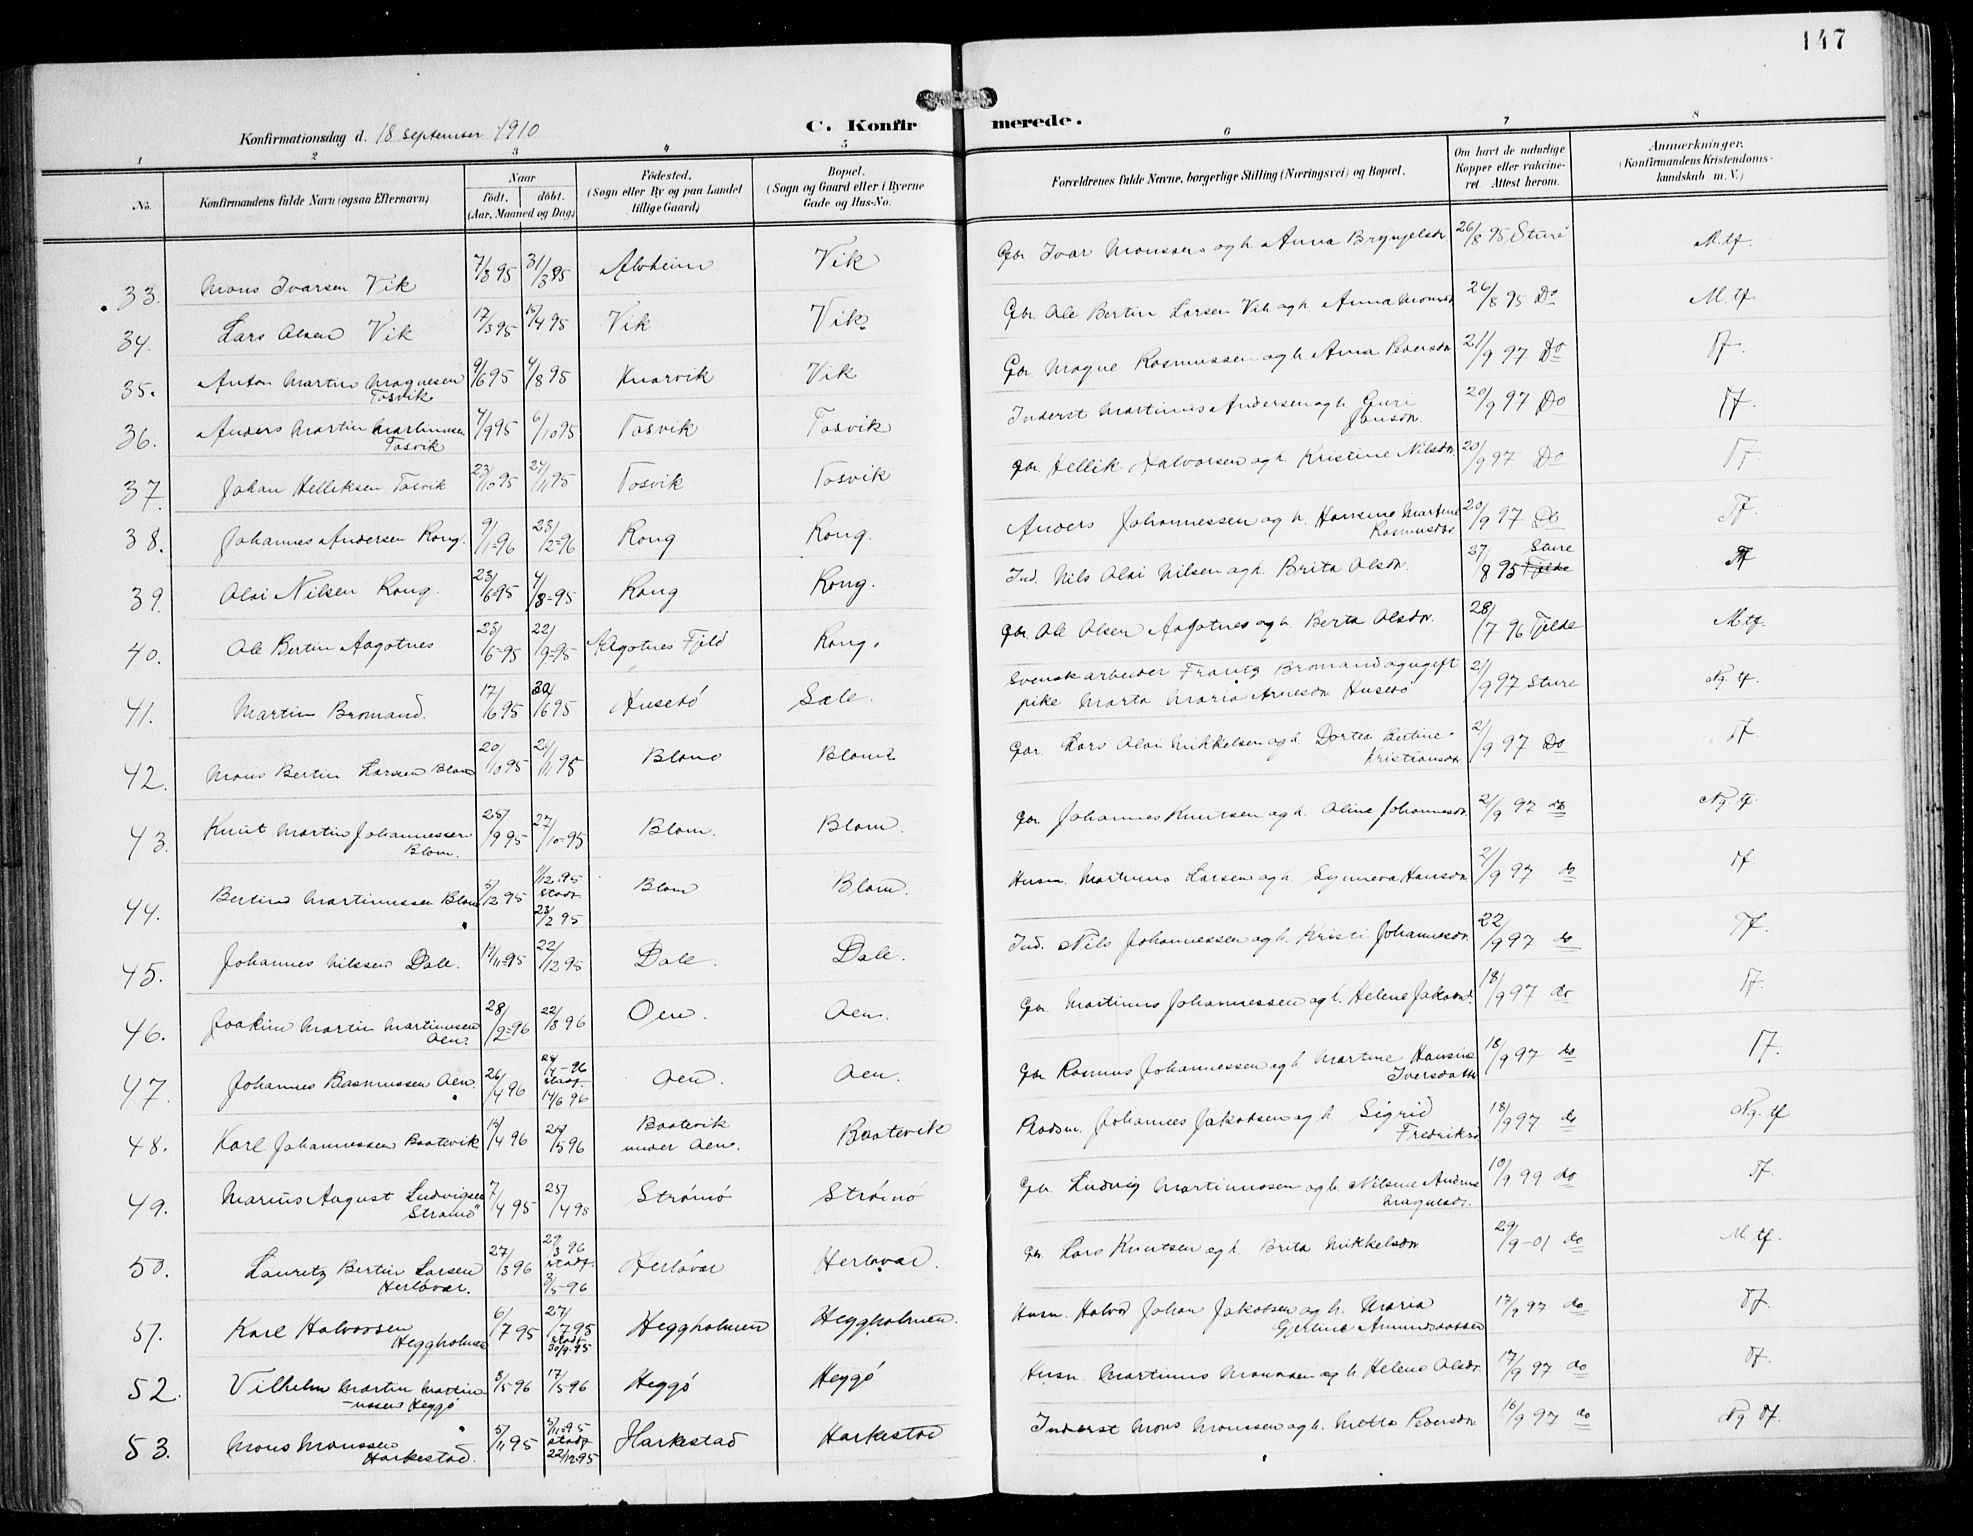 147
C. Konfirmerede.
Konfirmationsdag d. 18 september 1910
1 2 3 4 5 6 7 8
No. Konfirmandens fulde Navn (ogsaa Efternavn) Naar født. døbt. (Aar, Maaned og Dag) Fødested. (Sogn eller By og paa Landet tillige Gaard) Bopæl. (Sogn og Gaard eller i Byerne Gade og Hus-No. Forældrenes fulde Navne, borgerlige Stilling (Næringsvei) og Bopæl. Om havt de naturlige Kopper eller vakcineret. Attest herom. Anmærkninger. (Konfirmandens Kristendomskundskab m. V.)
33. Mons Ivarsen Vik 7/3 95 31/3 95 Alvheim Vik Gbr. Ivar Monssen og h. Anna Brynjelsdr 26/8 95 Sture M. tf.
34. Lars Olsen Vik 17/3 95 15/4 95 Vik Vik. Gbr. Ole Bertin Larsen Vik og h. Anna Monsdr 26/8 95 Do M. tf.
35. Anton Martin Magnesen Tosvik 9/6 95 4/8 95 Knarvik Vik Gbr. Magne Rasmussen og h. Anna Pedersdr 21/9 97 Do Tf.
36. Anders Martin Martinusen Tosvik 4/9 95 6/10 95 Tosvik Tosvik Inderst Martinus Andersen og h. Guri Jonsdr. 20/9 97 Do Tf.
37. Johan Helliksen Tosvik 23/10 95 24/11 95 Tosvik Tosvik Gbr. Hellik Halvorsen og h. Kristine Nilsdr. 20/9 97 Do Tf
38. Johannes Andersen Rong. 9/1-96 23/2-96 Rong Rong. Anders Johannessen og h. Hansine Martine Rasmusdr. 20/9 97 Do Tf.
39. Olai Nilsen Rong. 23/6-95 4/8-95 Rong Rong. Ind. Nils Olai Nilsen og h. Brita Olsdr. 27/8 95 Sture Fjelde Tf
40. Ole Bertin Aagotnes 23/6-95 22/9-95 Aagotnes Fjeld Rong. Gbr. Ole Olsen Aagotnes og h. Berta Olsdr. 28/7 96 Fjelde M. tf.
41. Martin Bromand. 17/6 95 30/6 95 Husebø Sæle. Svensk arbeider Frantz Bromand og ugift pike Marta Maria Arnesdr Husebø 21/9 97 Sture Ng. tf.
42. Mons Bertin Larsen Blom 20/10 95 24/11 95 Blom Blom Gbr. Lars Olai Mikkelsen og h. Dortea Bertine Kristiansdr 21/9 97 Do Tf
43. Knut Martin Johannessen Blom. 25/9 95 27/10-95 Blom. Blom. Gbr. Johannes Knutsen og h. Oline Johannesdr. 21/9 97 do Ng. tf.
44. Bertin Martinussen Blom 5/12 95 Blom Blom. Husm. Martinus Larsen og h. Synneva Hansdr 21/9 97 do Tf
45. Johannes Nilssen Dale. 14/11-95 22/12 95 Dale. Dale. Ind. Nils Johannessen og h. Kristi Johannesdr. 22/9 97 do Tf.
46. Joakim Martin Martinusen Oen. 28/2-96 22/3 96 Oen Oen. Gbr. Martinus Johannessen og h. Helene Jakobsd. 18/9 97 do Tf.
47. Johannes Rasmussen Oen. 26/4 96 stadf. 14/6 96 Oen. Oen. Gbr Rasmus Johannessen og h Martine Hansine Iversdatter 18/9 97 do Tf.
48. Karl Johannessen Baatevik 12/4 96 /5 96 Baatevik under Oen. Baatevik Pladsm. Johannes Jakobsen og h. Sigrid Fredriksd 18/9 97 do Ng. tf
49. Marius August Ludvigsen Strømø 7/4 95 25/4 95 Strømø Strømø Gbr. Ludvig Martinussen og h. Nilsine Andrine Magnesdr. 10/9 99 do Tf.
50. Lauritz Bertin Larsen Herløvær. 27/3 96 29/3 96 stadf. 3/5-96 Herløvær Herløvær. Gbr. Lars Knutsen og h. Brita Mikkelsdr 29/9-01 do M. tf.
51. Karl Halvorsen Heggholmen 6/7 95 27/7 95 stadf. Heggholmen Heggholmen. Husm. Halvor Johan Jakobsen og h. Maria Gjertine Amundsdatter 17/9 97 do Tf.
52. Vilhelm Martin Martinussen Heggø 3/5-96 17/5-96 Heggø Heggø Husm. Martinus Monssen og h. Helene Olsdr. 17/9 97 do Tf.
53. Mons Monssen Harkestad. 5/11 95 5/11-95 stadf 22/12-95 Harkestad Harkestad Inderst Mons Monssen og h. Metta Pedersdr 16/9 97 do Ng tf.